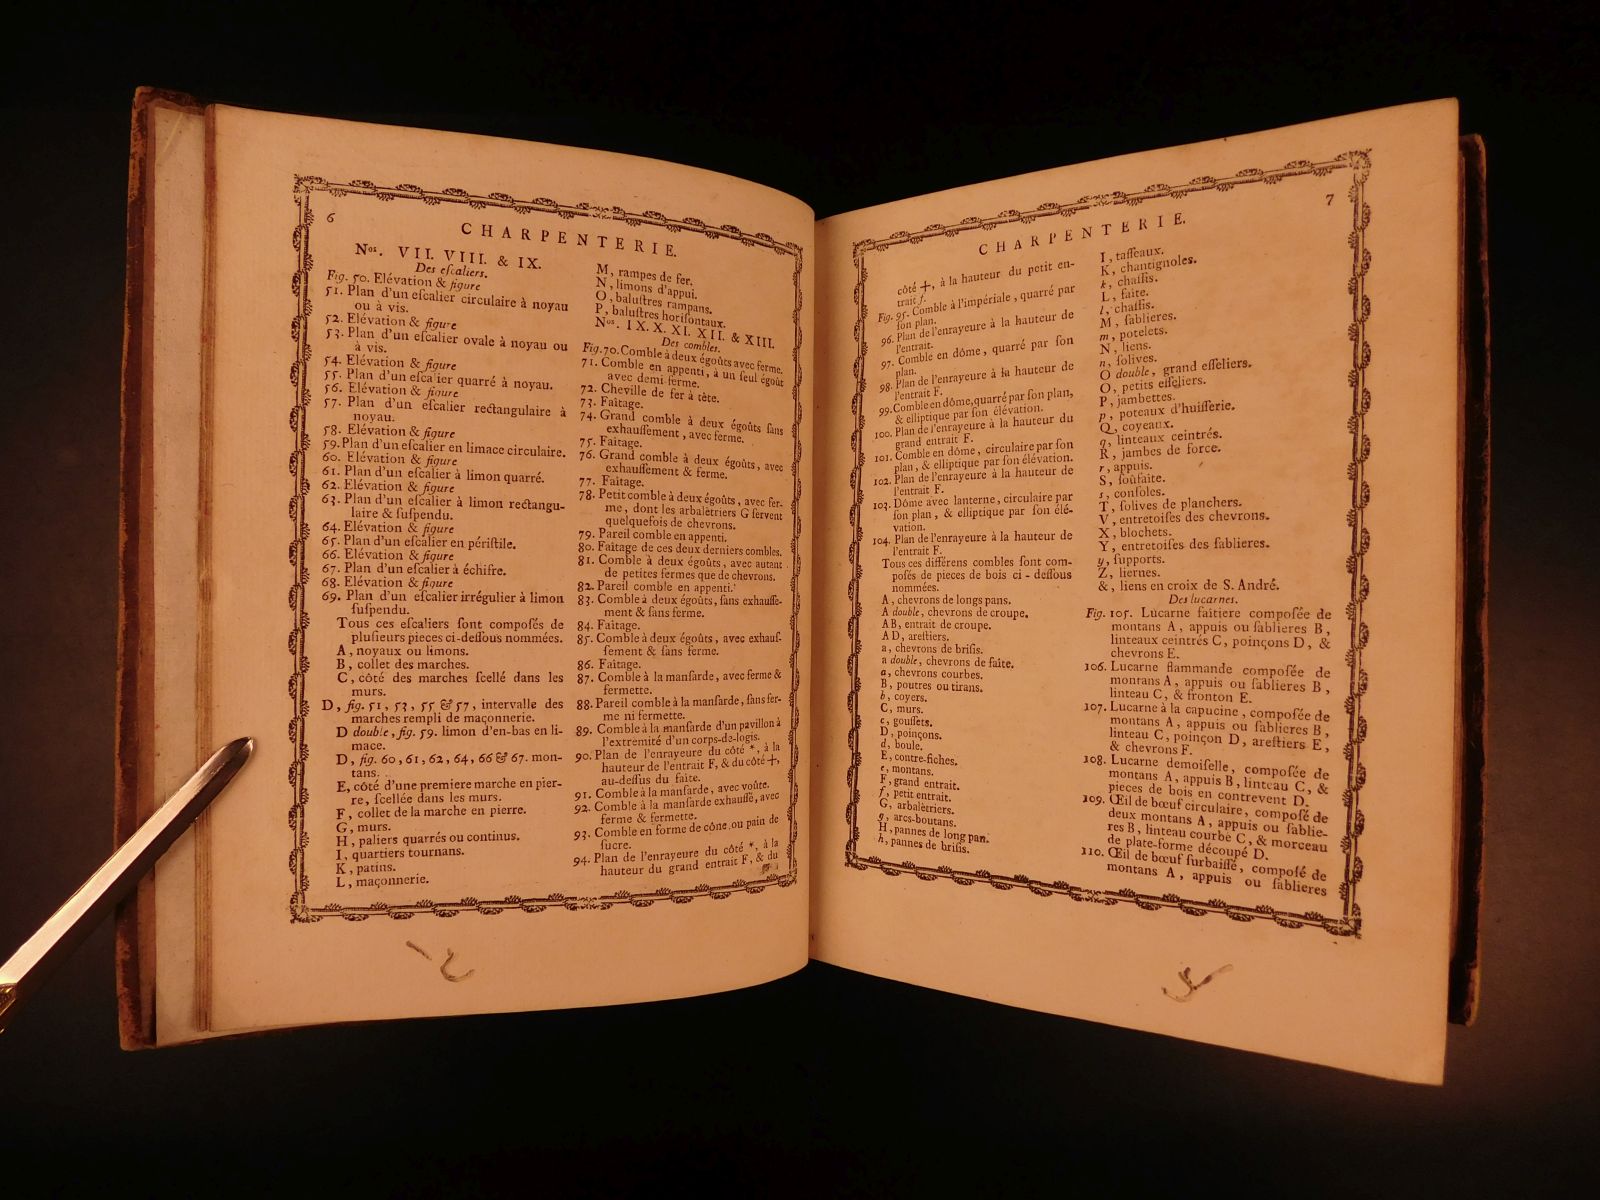 6
CHARPENTERIE.
Nos. VII. VIII. & IX.
Des eſcaliers.
Fig. 50. Elévation & figure
51. Plan d'un eſcalier circulaire à noyau
ou à vis.
52. Elévation & figure
53. Plan d'un eſcalier ovale à noyau ou
à vis.
54. Elévation & figure
55. Plan d'un eſcalier quarré à noyau.
56. Elévation & figure
57. Plan d'un eſcalier rectangulaire à
noyau.
58. Elévation & figure
59. Plan d'un eſcalier en limace circulaire.
60. Elévation & figure
61. Plan d'un eſcalier à limon quarré.
62. Elévation & figure
63. Plan d'un eſcalier à limon rectangu-
laire & ſuſpendu.
64. Elévation & figure
65. Plan d'un eſcalier en périſtile.
66. Elévation & figure
67. Plan d'un eſcalier à échifre.
68. Elévation & figure
69. Plan d'un eſcalier irrégulier à limon
ſuſpendu.
Tous ces eſcaliers ſont compoſés de
pluſieurs pieces ci-deſſous nommées.
A, noyaux ou limons.
B, collet des marches.
C, côté des marches ſcellé dans les
murs.
D, fig. 51, 53, 55 & 57, intervalle des
marches rempli de maçonnerie.
D double, fig. 59. limon d'en-bas en li-
mace.
D, fig. 60, 61, 62, 64, 66 & 67. mon-
tans.
E, côté d'une premiere marche en pier-
re, ſcellée dans les murs.
F, collet de la marche en pierre.
G, murs.
H, paliers quarrés ou continus.
I, quartiers tournans.
K, patins.
L, maçonnerie.
M, rampes de fer.
N, limons d'appui.
O, baluſtres rampans.
P, baluſtres horiſontaux.
Nos. IX. X. XI. XII. & XIII.
Des combles.
Fig. 70. Comble à deux égoûts avec ferme.
71. Comble en appenti, à un ſeul égoût
avec demi-ferme.
72. Cheville de fer à tête.
73. Faîtage.
74. Grand comble à deux égoûts ſans
exhauſſement, avec ferme.
75. Faîtage.
76. Grand comble à deux égoûts, avec
exhauſſement & ferme.
77. Faîtage.
78. Petit comble à deux égoûts, avec fer-
me, dont les arbalêtriers G ſervent
quelquefois de chevrons.
79. Pareil comble en appenti.
80. Faîtage de ces deux derniers combles.
81. Comble à deux égoûts, avec autant
de petites fermes que de chevrons.
82. Pareil comble en appenti.
83. Comble à deux égoûts, ſans exhauſſe-
ment & ſans ferme.
84. Faîtage.
85. Comble à deux égoûts, avec exhauſ-
ſement & ſans ferme.
86. Faîtage.
87. Comble à la manſarde, avec ferme &
fermette.
88. Pareil comble à la manſarde, ſans fer-
me ni fermette.
89. Comble à la manſarde d'un pavillon à
l'extremité d'un corps-de-logis.
90. Plan de l'enrayeure du côté *, à la
hauteur de l'entrait F, & du côté +,
au-deſſus du faîte.
91. Comble à la manſarde, avec voûte.
92. Comble à la manſarde exhauſſé, avec
ferme & fermette.
93. Comble en forme de cône ou pain de
ſucre.
94. Plan de l'enrayeure du côté *, à la
hauteur du grand entrait F, & du
7
CHARPENTERIE.
côté +, à la hauteur du petit en-
trait f.
Fig. 95. Comble à l'impériale, quarré par
ſon plan.
96. Plan de l'enrayeure à la hauteur de
l'entrait.
97. Comble en dôme, quarré par ſon
plan.
98. Plan de l'enrayeure à la hauteur de
l'entrait F.
99. Comble en dôme, quarré par ſon plan,
& elliptique par ſon élévation.
100. Plan de l'enrayeure à la hauteur du
grand entrait F.
101. Comble en dôme, circulaire par ſon
plan, & elliptique par ſon élévation.
102. Plan de l'enrayeure à la hauteur de
l'entrait F.
103. Dôme avec lanterne, circulaire par
ſon plan, & elliptique par ſon élé-
vation.
104. Plan de l'enrayeure à la hauteur de
l'entrait F.
Tous ces différens combles ſont com-
poſés de pieces de bois ci-deſſous
nommées.
A, chevrons de longs pans.
A double, chevrons de croupe.
AB, entrait de croupe.
AD, areſtiers.
a, chevrons de briſis.
a double, chevrons de faîte.
a, chevrons courbes.
B, poutres ou tirans.
b, coyers.
C, murs.
c, gouſſets.
D, poinçons.
d, boule.
E, contre-fiches.
e, montans.
F, grand entrait.
f, petit entrait.
G, arbalêtriers.
g, arcs-boutans.
H, pannes de long pan.
h, pannes de briſis.
I, taſſeaux.
K, chantignoles.
k, chaſſis.
L, faîte.
l, chaſſis.
M, ſablieres.
m, potelets.
N, liens.
n, ſolives.
O double, grand eſſeliers.
O, petits eſſeliers.
P, jambettes.
p, poteaux d'huiſſerie.
Q, coyeaux.
q, linteaux ceintrés.
R, jambes de force.
r, appuis.
S, ſoûfaite.
s, conſoles.
T, ſolives de planchers.
V, entretoiſes des chevrons.
X, blochets.
Y, entretoiſes des ſablieres.
y, ſupports.
Z, liernes.
&, liens en croix de S. André.
Des lucarnes.
Fig. 105. Lucarne faîtiere compoſée de
montans A, appuis ou ſablieres B,
linteaux ceintrés C, poinçons D, &
chevrons E.
106. Lucarne flammande compoſée de
montans A, appuis ou ſablieres B,
linteau C, & fronton E.
107. Lucarne à la capucine, compoſée de
montans A, appuis ou ſablieres B,
linteau C, poinçon D, areſtiers E,
& chevrons F.
108. Lucarne demoiſelle, compoſée de
montans A, appuis B, linteau C, &
pieces de bois en contrevent D.
109. Œil de bœuf circulaire, compoſé de
deux montans A, appuis ou ſablie-
res B, linteau courbe C, & morceau
de plate-forme découpé D.
110. Œil de bœuf ſurbaiſſé, compoſé de
montans A, appuis ou ſablieres